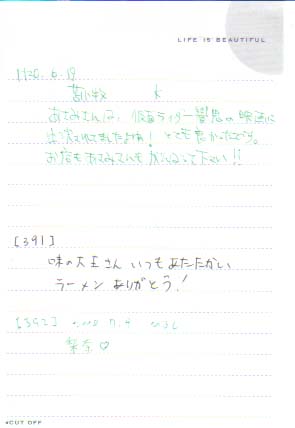 LIFE IS BEAUTIFUL
H30. 6. 19
苫小牧
あさみさんは、仮面ライダー響鬼の映画に
出演されてましたよね! とても良かったです。
お店もあさみさんも がんばって下さい!!
[391]
味の大王さん いつもあたたかい
ラーメン ありがとう!
[392] 7. 4
梨奈♡
CUT OFF